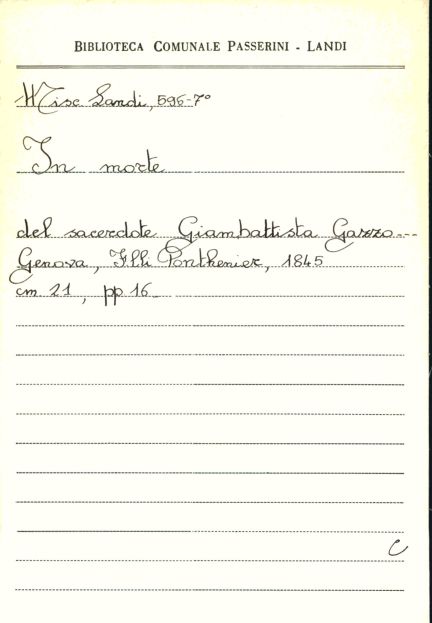 BIBLIOTECA COMUNALE PASSERINI - LANDI
Misc. Landi, 596-7°
In morte
del sacerdote Giambattista Gazzo.--
Genova, F.lli Ponthenier, 1845
cm 21, pp 16_
C